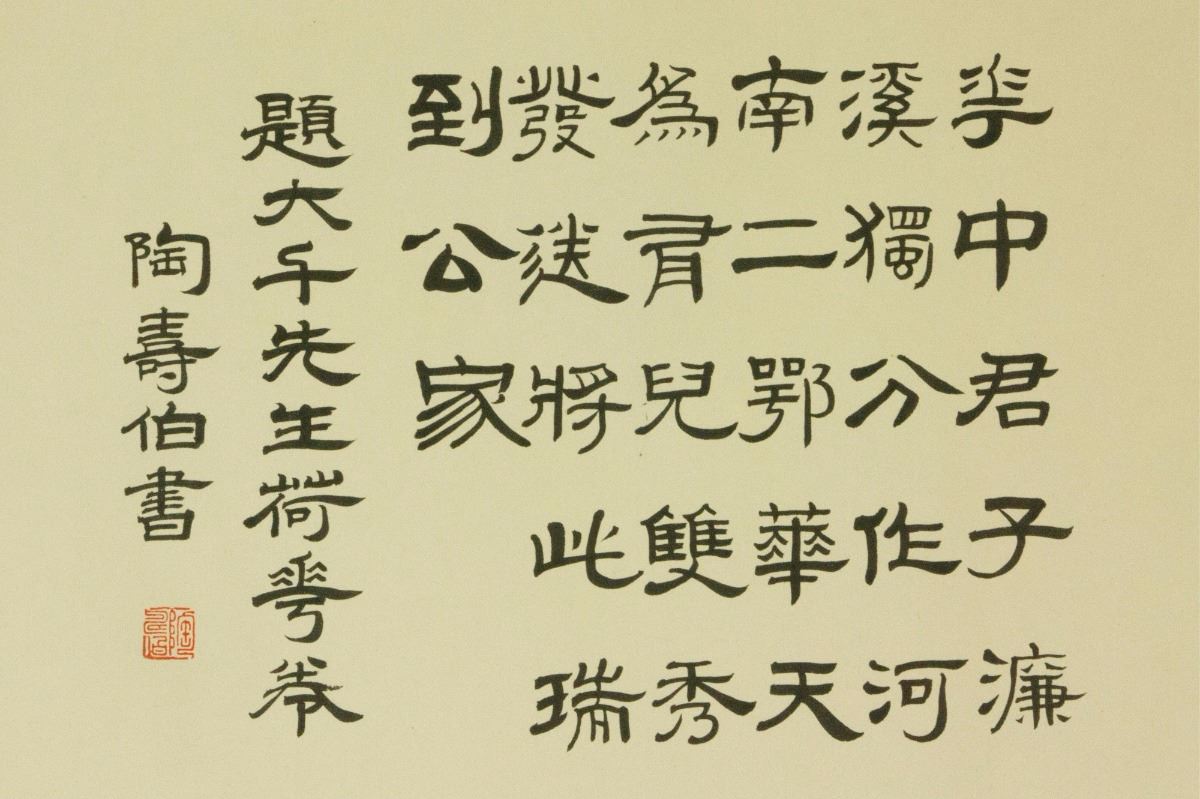 花中君子濂
溪獨分作河
南二鄂華天
為有兒雙秀
發送將此瑞
到公家
題大千先生荷花卷
陶壽伯書